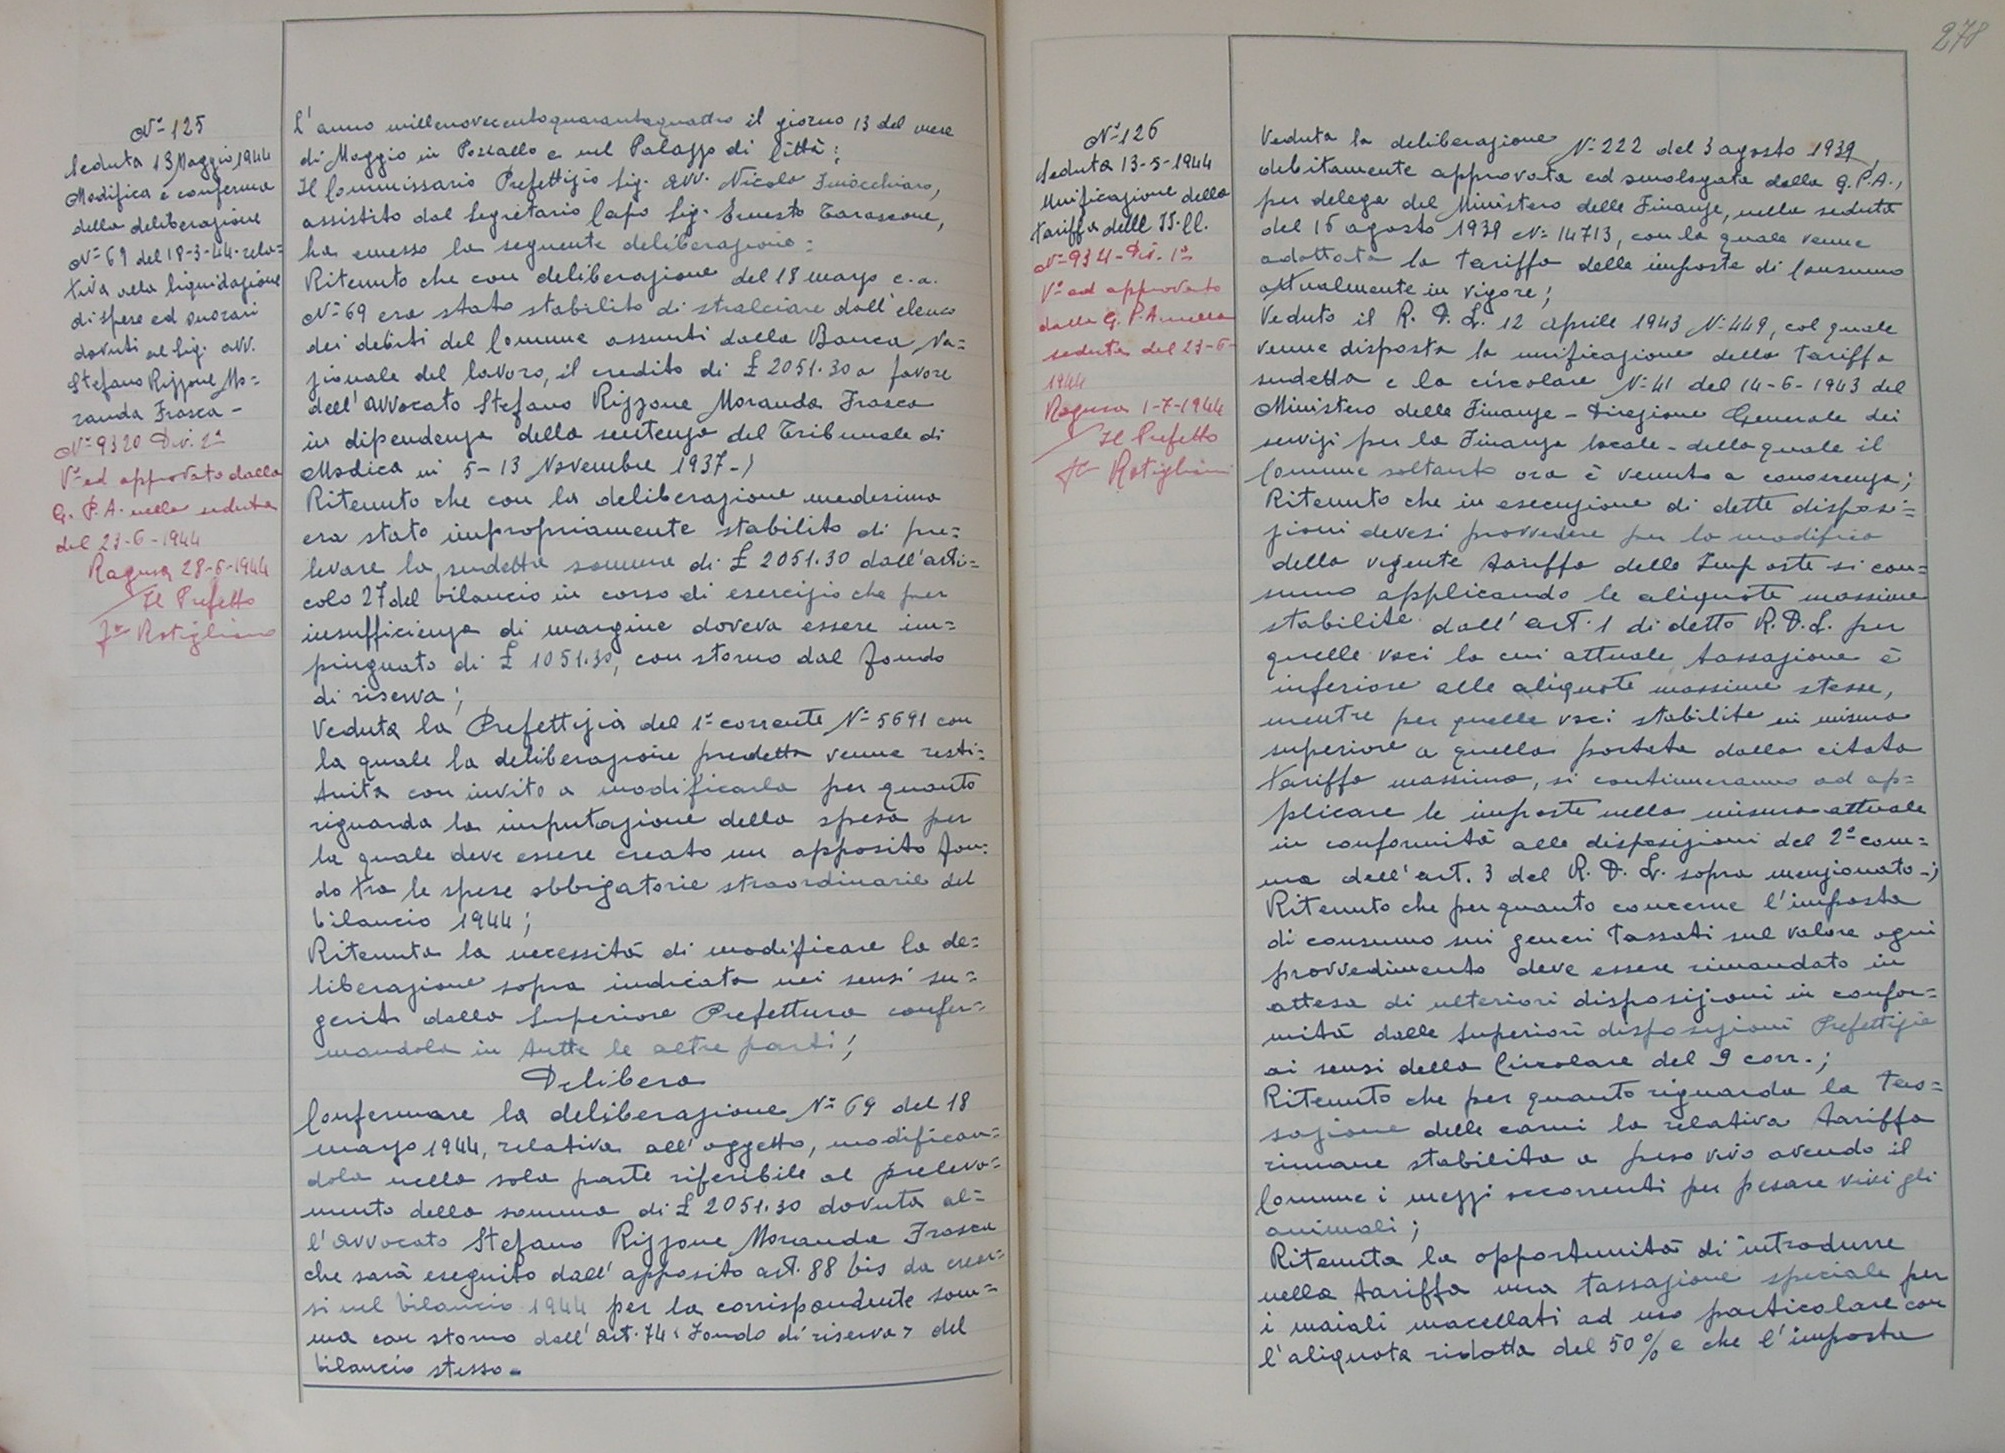 N° 125
Seduta 13 Maggio 1944
Modifica e conferma
della deliberazione
N° 69 del 18-3-44 rela=
tiva alla liquidazione
di spese ed onorari
dovuti al Sig. avv.
Stefano Rizzone Mo=
randa Frasca -
N° 9320 Div. 2ª
V° ed approvato dalla
G. P. A. nella seduta
del 23-6-1944
Ragusa 28-6-1944
Il Prefetto
L'anno millenovecentoquarantaquattro il giorno 13 del mese
di Maggio in Pozzallo e nel Palazzo di Città;
Il Commissario Prefettizio Sig. avv. Nicola Finocchiaro,
assistito dal Segretario Capo Sig. Ernesto Tarascone,
ha emesso la seguente deliberazione:
Ritenuto che con deliberazione del 18 marzo c.a.
N° 69 era stato stabilito di stralciare dall'elenco
dei debiti del Comune assunti dalla Banca Na=
zionale del lavoro, il credito di £ 2051.30 a favore
dell'avvocato Stefano Rizzone Moranda Frasca
in dipendenza della sentenza del Tribunale di
Modica in 5-13 Novembre 1937-;
Ritenuto che con la deliberazione medesima
era stato impropriamente stabilito di pre=
levare la sudetta somma di £ 2051.30 dall'arti=
colo 27 del bilancio in corso di esercizio che per
insufficienza di margine doveva essere im=
pinguato di £ 1051.30, con storno dal fondo
di riserva;
Veduta la Prefettizia del 1° corrente N° 5691 con
la quale la deliberazione predetta venne resti=
tuita con invito a modificarla per quanto
riguarda la imputazione della spesa per
la quale deve essere creato un apposito fon=
do tra le spese obbligatorie straordinarie del
bilancio 1944;
Ritenuta la necessità di modificare la de=
liberazione sopra indicata nei sensi su=
geriti dalla Superiore Prefettura confer=
mandola in tutte le altre parti;
Delibera
Confermare la deliberazione N° 69 del 18
marzo 1944, relativa all'oggetto, modifican=
dola nella sola parte riferibile al preleva=
mento della somma di £ 2051.30 dovuta al=
l'avvocato Stefano Rizzone Moranda Frasca
che sarà eseguito dall'apposito art. 88 bis da crear=
si nel bilancio 1944 per la corrispondente som=
ma con storno dall'art. 74 "Fondo di riserva" del
bilancio stesso.
278
N° 126
Seduta 13-5-1944
Unificazione della
tariffa delle II.CC.
N° 9321 - Div. 1ª
V° ed approvato
dalla G. P. A. nella
seduta del 23-6-
1944
Ragusa 1-7-1944
Il Prefetto
Veduta la deliberazione N° 222 del 3 agosto 1939
debitamente approvata ed omologata dalla G.P.A.,
per delega del Ministero delle Finanze, nella seduta
del 16 agosto 1939 N° 14713, con la quale venne
adottata la tariffa delle imposte di Consumo
attualmente in vigore;
Veduto il R. D. L. 12 aprile 1943 N° 449, col quale
venne disposta la unificazione della tariffa
sudetta e la circolare N° 41 del 14-6-1943 del
Ministero delle Finanze - Direzione Generale dei
servizi per la Finanza locale - della quale il
Comune soltanto ora è venuto a conoscenza;
Ritenuto che in esecuzione di dette disposi=
zioni devesi provvedere per la modifica
della vigente tariffa delle Imposte si con=
sumo applicando le aliquote massime
stabilite dall'art. 1 di detto R. D. L. per
quelle voci la cui attuale tassazione è
inferiore alle aliquote massime stesse,
mentre per quelle voci stabilite in misura
superiore a quella portata dalla citata
tariffa massima, si continueranno ad ap=
plicare le imposte nella misura attuale
in conformità alle disposizioni del 2° com=
ma dell'art. 3 del R. D. L. sopra menzionato-;
Ritenuto che per quanto concerne l'imposta
di consumo sui generi tassati sul valore ogni
provvedimento deve essere rimandato in
attesa di ulteriori disposizioni in confor=
mità dalle superiori disposizioni Prefettizie
ai sensi della Circolare del 9 corr.;
Ritenuto che per quanto riguarda la tas=
sazione delle carni la relativa tariffa
rimane stabilita a peso vivo avendo il
Comune i mezzi occorrenti per pesare vivi gli
animali;
Ritenuta la opportunità di introdurre
nella tariffa una tassazione speciale per
i maiali macellati ad uso particolare con
l'aliquota ridotta del 50% e che l'imposta